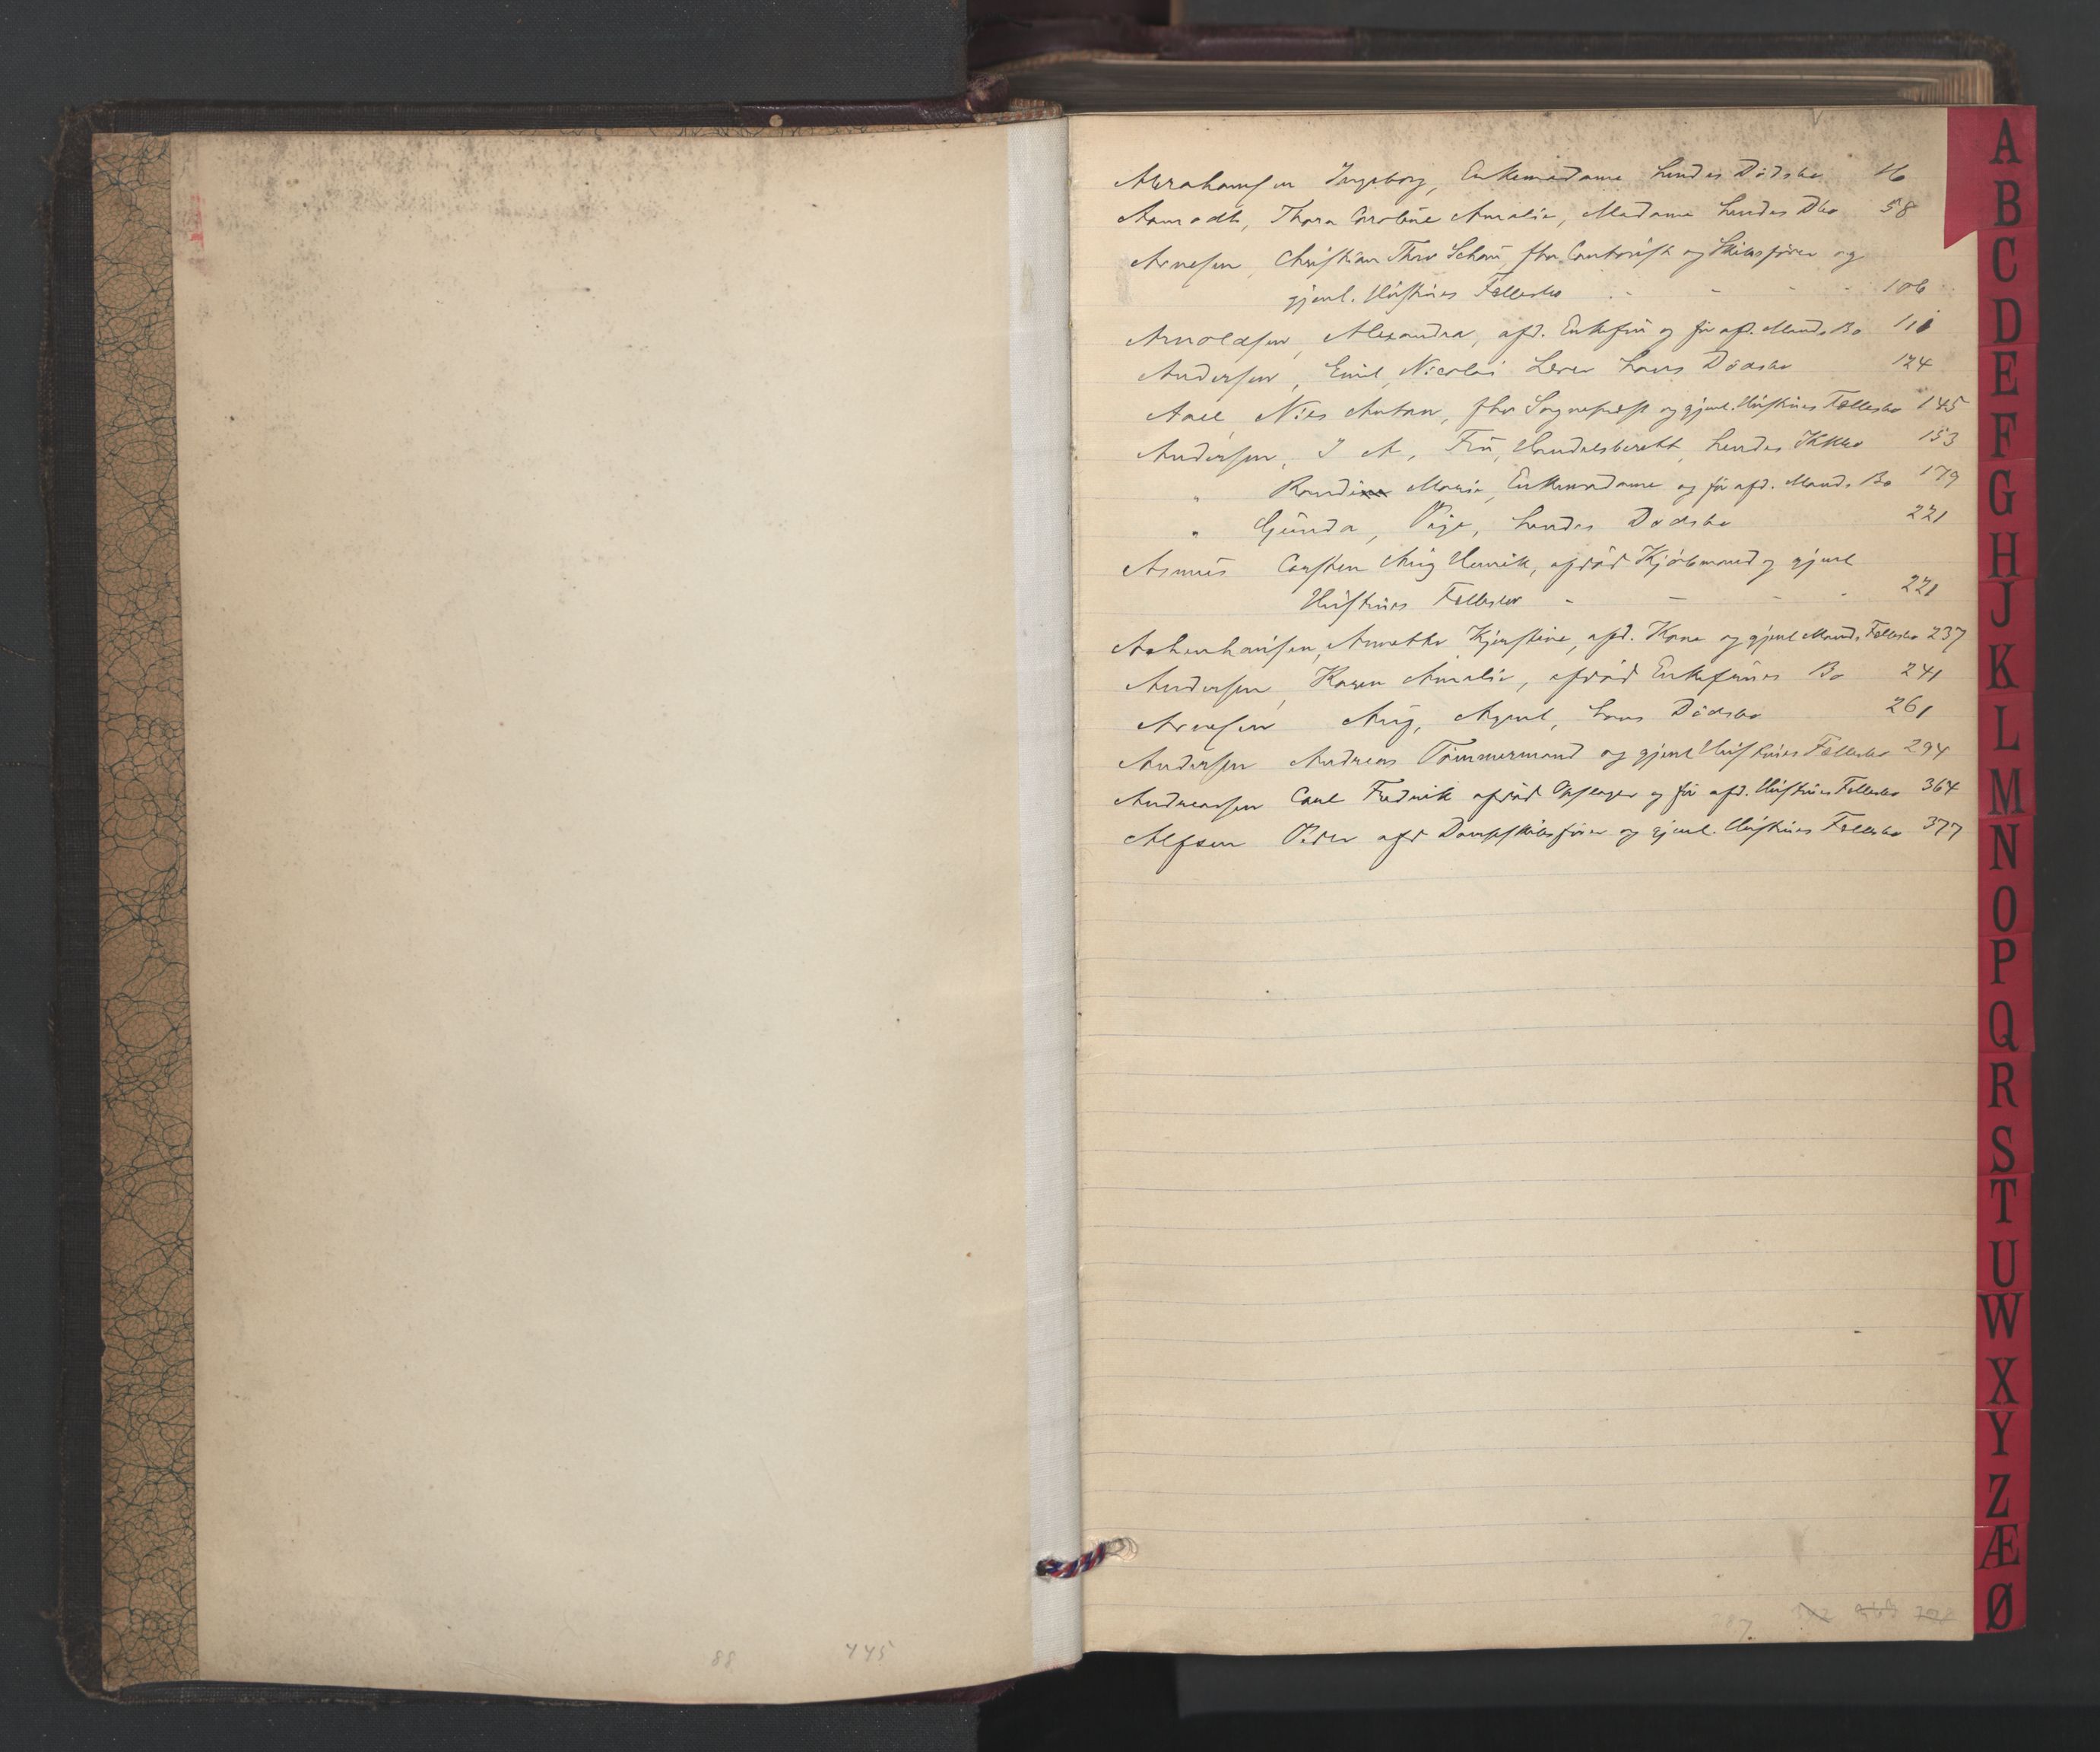 Abrahamsen Ingeborg, Enkemadame hendes Dödsbo 16
Aamodt, Thora Caroline Amalie, Madame hendes Dbo 58
Arnesen Christian Thrv Schou, fhv. Contorist og Skibsfører og
gjenl. Hustrues Fællesbo - - - - 106
Arnoldsen, Alexandra, afd. Enkefru og før afd. Mands Bo 111
Andersen, Emil Nicolai Lexer hans Dödsbo 124
Aall, Niels Anton, fhv Sognepræst og gjenl. Hustrues Fællesbo 145
Andersen, J A, Fru, Handelsberett, hendes Kkbo 153
" Randine Marie, Enkemadame og før afd. Mands Bo 179
" Gunda, Pige, hendes Dødsbo 221
Asmus Carsten Aug Henrik, afdöd Kjöbmand og gjenl
Hustrues Fællesbo - - - - 221
Achenhausen, Annette Kjerstine, afd. Kone og gjenl Mands Fællesbo 237
Andersen, Karen Amalie, afdöd Enkefrues Bo 241
Arnesen Aug, Agent, hans Dödsbo 261
Andersen Andreas Tömmermand og gjenl Hustrues Fællesbo 294
Andreassen Carl Fredrik afdöd Opslager og før afd. Hustrues Fællesbo 364
Alfsen Peder afd Dampskibsfører og gjenl. Hustrues Fællesbo 377
A
B
C
D
E
F
G
H
J
K
L
M
N
O
P
Q
R
S
T
U
W
X
Y
Z
Æ
Ø
88 445
387.